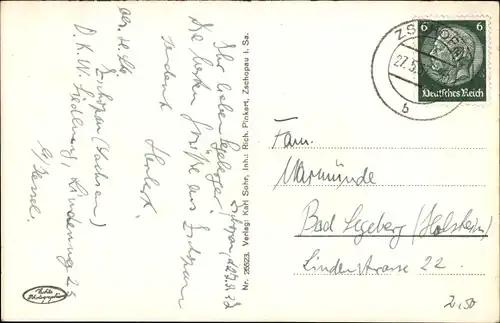 6 6
Deutsches Reich
ZSCHOPAU
27.5.
b
Fam.
Warmünde
Bad Segeberg (Holstein)
Lindenstrasse 22.
2,50
Nr. 26923. Verlag: Karl Sohr, Inh.: Rich. Pinkert, Zschopau i. Sa.
Zschopau, d. 27.5.
Ihr lieben Segeberger,
die besten Grüße aus Zschopau
sendet
Herbert.
Zschopau (Sachsen)
D.K.W. Siedlung, Lindenweg 25
b/
Echte
Photographie